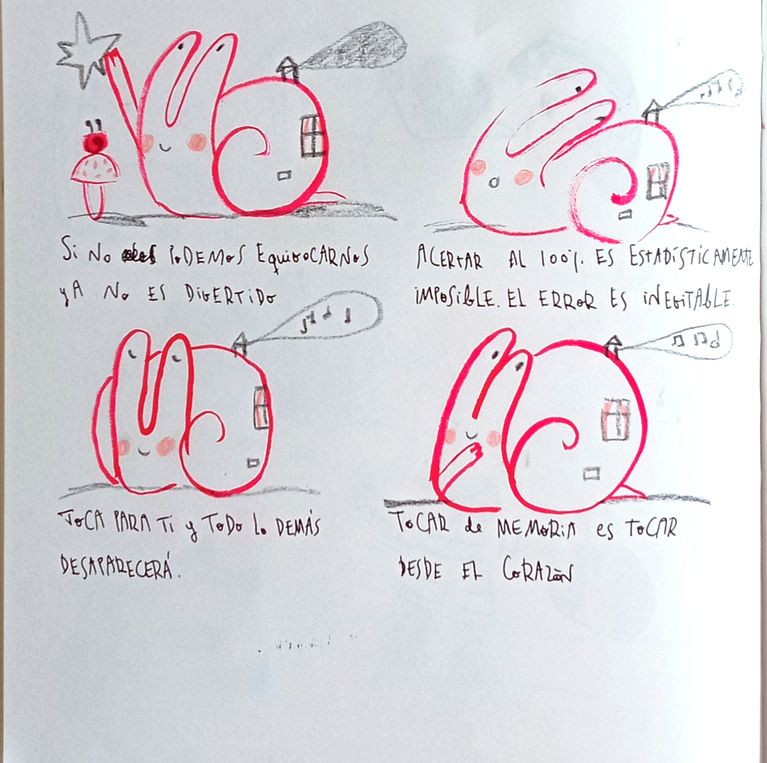 Si NO PODEMOS EQUIVOCARNOS
YA NO ES DIVERTIDO
ACERTAR AL 100%. ES ESTADÍSTICAMENTE
IMPOSIBLE. EL ERROR ES INEVITABLE.
TOCA PARA TI y TODO LO DEMÁS
DESAPARECERÁ.
TOCAR de MEMORIA es TOCAR
DESDE EL CORAZÓN